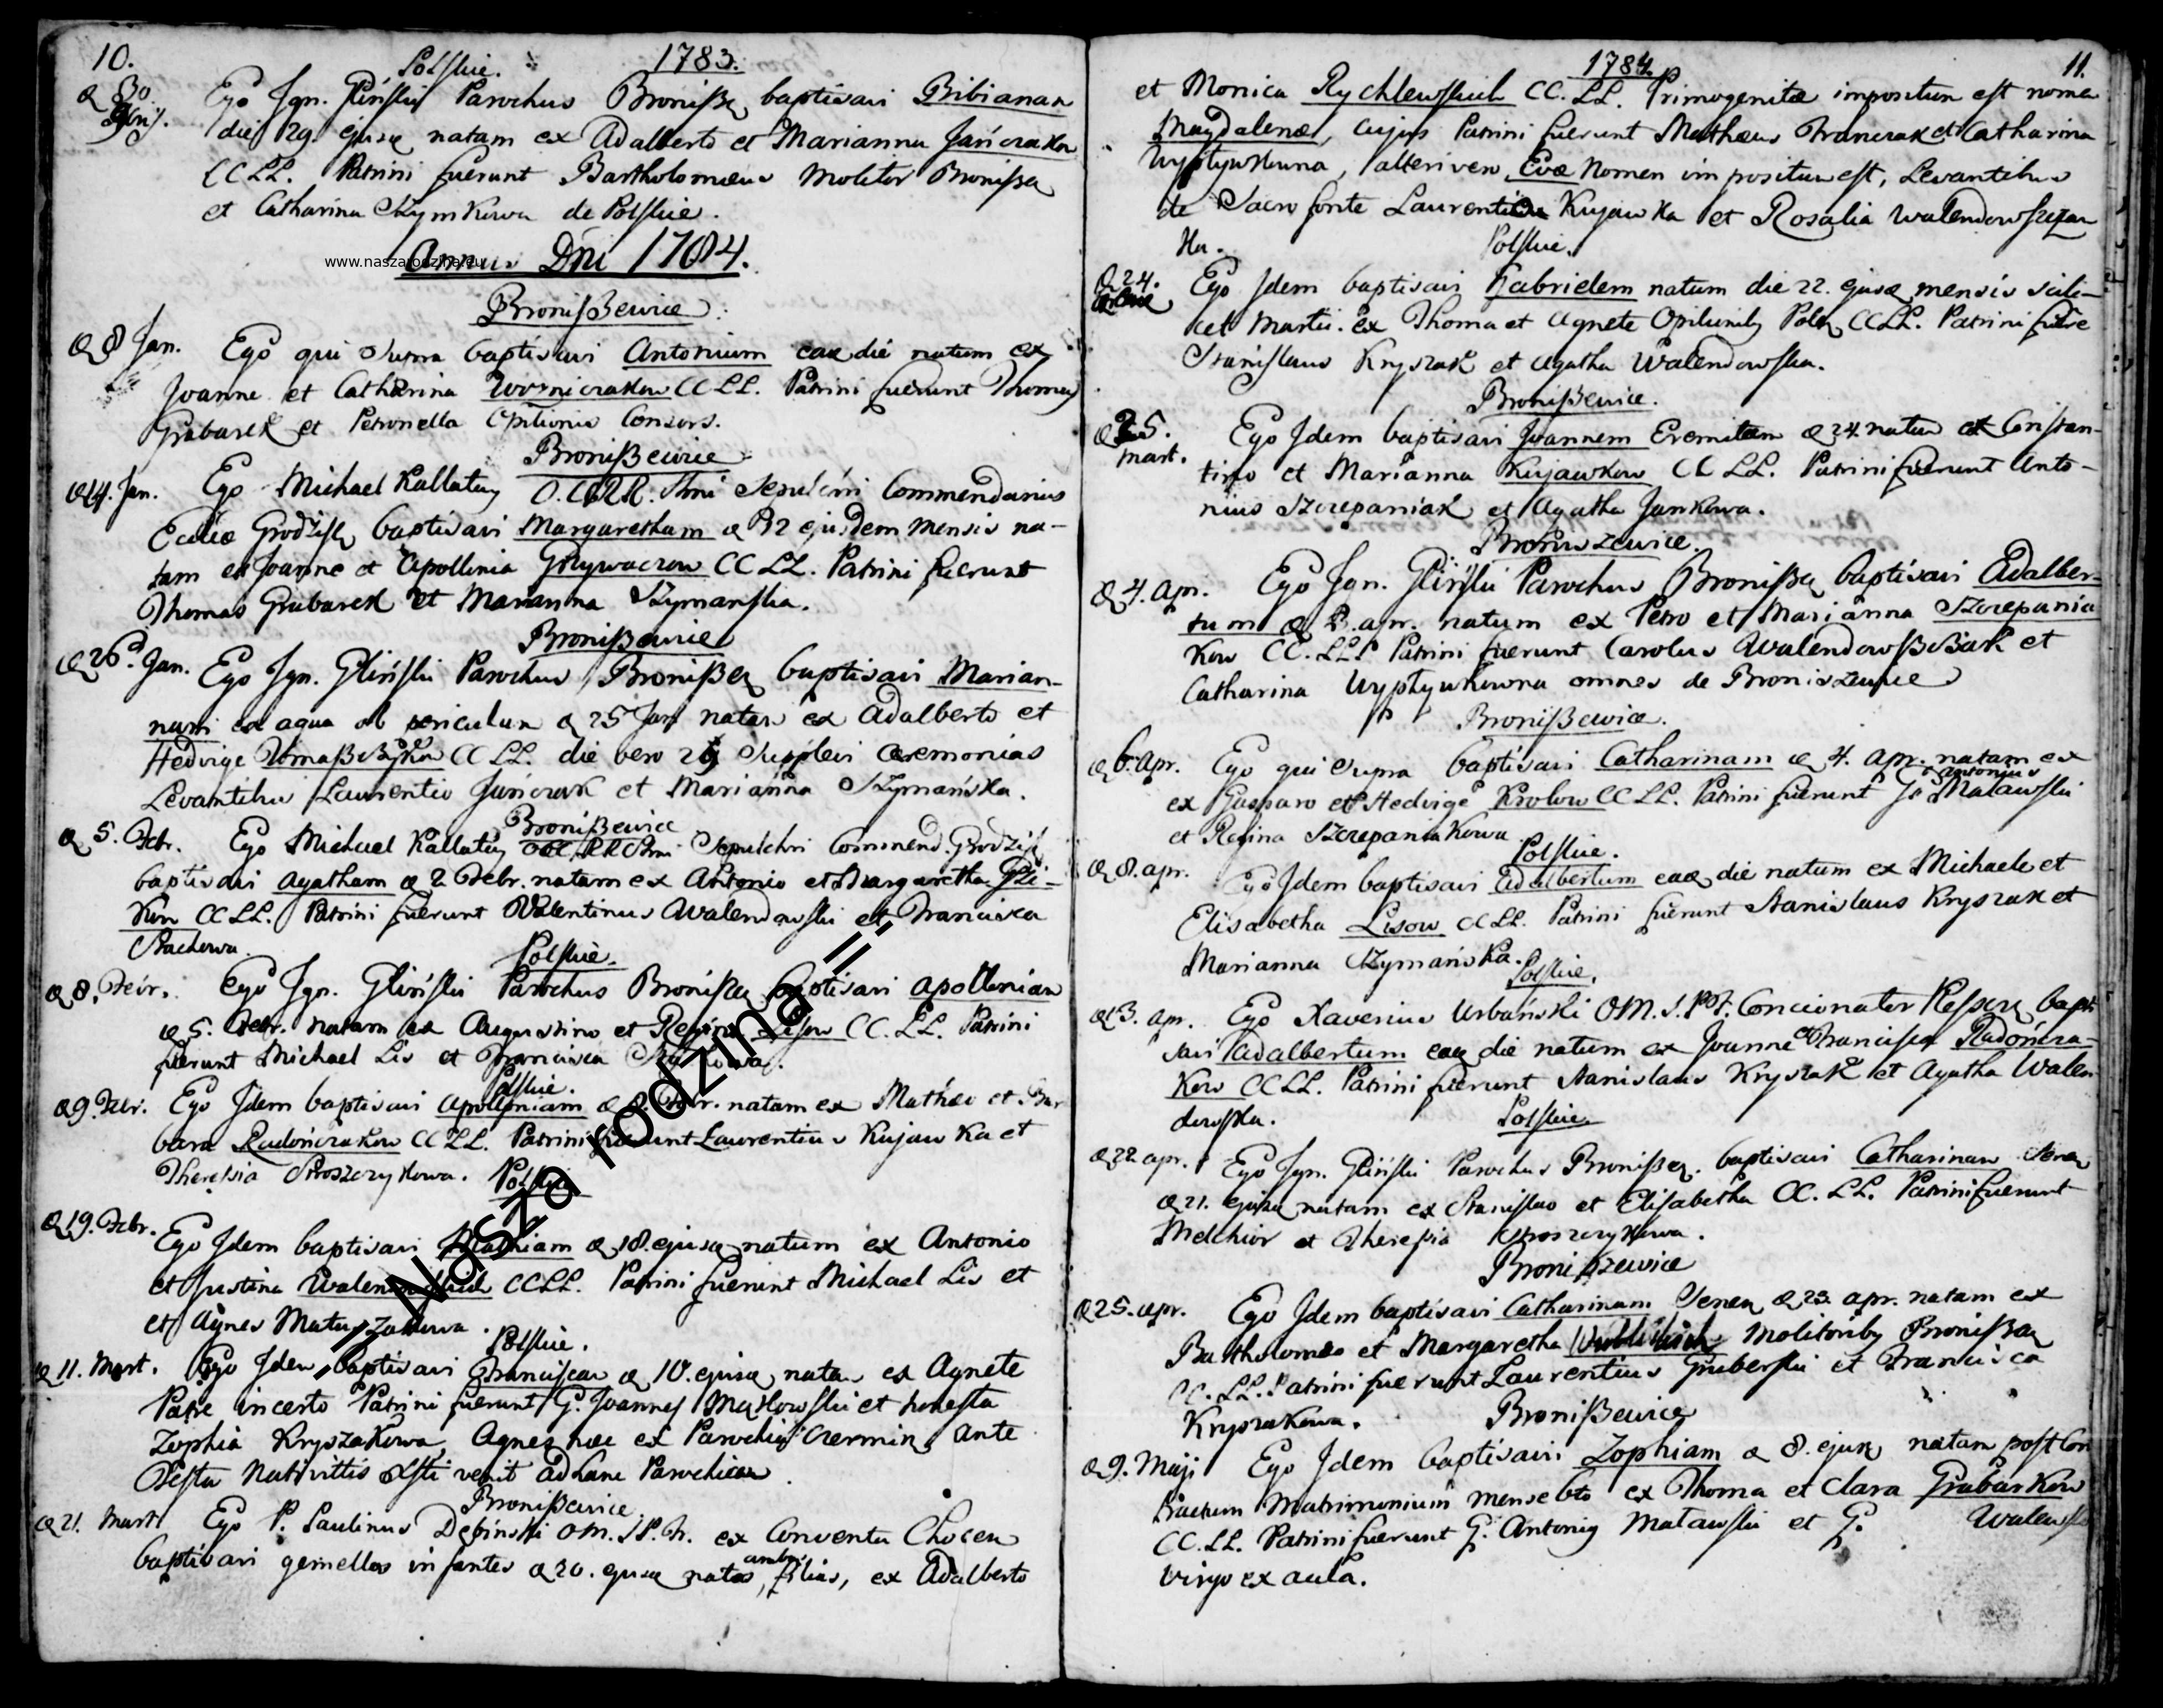 10.
Polskie.
1783.
30
Ego Ign. Gliński Parochus Broniße baptisavi Bibianam
die 29. ejusq natam ex Adalberto et Marianna Jańczakow
CCLL. Patrini fuerunt Bartholomeus Molitor Broniße
et Catharina Szymkowa de Polskie.
Annus Dni 1784.
www.naszarodzina.eu
Bronißewice.
8 Jan. Ego qui supra baptisavi Antonium eaq die natum ex
Joanne et Catharina Woyniczakow CCLL. Patrini fuerunt Thomas
Grabarek et Petronella Opilionis Consors.
Bronißewice
14. Jan. Ego Michael Kallaty O.C.RR. Smi Sepulcri Commendarius
Eccliæ Grodzisk baptisavi Margaretham 12 ejusdem mensis na-
tam ex Joanne et Apollinia Grzywaczow CCLL. Patrini fuerunt
Thomas Grabarek et Marianna Szymanska.
Bronißewice
26. Jan. Ego Ign. Gliński Parochus Broniße baptisavi Marian-
nam ex aqua ob periculum 25 Jan natam ex Adalberto et
Hedvige CCLL. die vero 29 supplevi cæremonias
Levantibus Laurentio Jańczak et Marianna Szymańska.
Bronißewice
5. Febr. Ego Michael Kallaty Sepulchri Commend. Grodzisk
baptisavi Agatham 2 Febr. natam ex Antonio et Margaretha Gli-
kow CCLL. Patrini fuerunt Valentinus Walendowski et Francisca
Stachowa.
Polskie.
8. Febr. Ego Ign. Gliński Parochus Broniße baptisavi Apolloniam
5. Febr. natam ex Augustino et Regina Lisow CC.LL. Patrini
fuerunt Michael Lis et Francisca
Polskie.
9. Febr. Ego Idem baptisavi Apolloniam 8. Febr. natam ex Mathæo et Bar
bara Radończakow CCLL. Patrini fuerunt Laurentius Kujawka et
Theresia Stroszczykowa.
Polskie
19. Febr. Ego Idem baptisavi Mathiam 18. ejusq natum ex Antonio
et Justina CCLL. Patrini fuerunt Michael Lis et
et Agnes Matuszakowa.
Polskie.
11. Mart. Ego Idem baptisavi Franciscam 10. ejusq natam ex Agnete
Patre incerto Patrini fuerunt G. Joannes Masłowski et honesta
Zophia Kryszakowa, Agnes hæc ex Parochia Czermin, ante
Festa Nativittis venit ad hanc Parochiam.
Bronißewice
21. Mart. Ego P. Paulinus Dębiński O.M.S.P.F. ex Conventu Chocen
baptisavi gemellos infantes 20. ejusq natas, ambas filias, ex Adalberto
Nasza rodzina
1784.
11.
et Monica Rychlewskich CC.LL. Primogenitæ impositum est nomen
Magdalenæ, cujus Patrini fuerunt Mathæus Franczak et Catharina
Wypływkowna, alteri vero Evæ nomen impositum est, Levantibus
de Sacro fonte Laurentio Kujawka et Rosalia Walendowszczan
ka.
Polskie.
24. Ego Idem baptisavi Gabrielem natum die 22. ejusq mensis scili-
cet Martii. ex Thoma et Agnete Opilionib Pols CCLL. Patrini fuere
Stanislaus Kryszak et Agatha Walendowska.
Bronißewice.
25. Mart. Ego Idem baptisavi Joannem Eremitam 24 natum ex Constan-
tino et Marianna Kujawkow CCLL. Patrini fuerunt Anto-
nius Szczepaniak et Agatha Jankowa.
Broniszewice.
4. Apr. Ego Ign. Gliński Parochus Broniße baptisavi Adalber-
tum 3. apr. natum ex Petro et Marianna Szczepania
kow CC.LL. Patrini fuerunt Carolus et
Catharina Wypływkowna omnes de Broniszewice
Bronißewice.
6. Apr. Ego qui supra baptisavi Catharinam 4. apr. natam ex
ex Gasparo et Hedvige Krolow CCLL. Patrini fuerunt G. Antonius Matawski
et Regina Szczepaniakowa.
Polskie.
8. apr. Ego Idem baptisavi Adalbertum eaq die natum ex Michaele et
Elisabetha Lisow CCLL. Patrini fuerunt Stanislaus Kryszak et
Marianna Szymańska.
Polskie.
13. apr. Ego Xaverius Urbański OM.S.P.F. Concionator bapti
savi Adalbertum eaq die natum ex Joanne et Francisca Radończa-
kow CCLL. Patrini fuerunt Stanislaus Kryszak et Agatha Walen
dowska.
Polskie.
22 apr. Ego Ign. Gliński Parochus Broniße. baptisavi Catharinam Senen
21. ejusq natam ex Stanislao et Elisabetha CC.LL. Patrini fuerunt
Melchior et Theresia Stroszczykowa.
Broniszewice
25. apr. Ego Idem baptisavi Catharinam Senen 23. apr. natam ex
Bartholomæo et Margaretha Molitorib Broniße
CC.LL. Patrini fuerunt Laurentius Gruberski et Francisca
Kryszakowa.
Bronißewice
9. Maji Ego Idem baptisavi Zophiam 8. ejusq natam post Con
tractum Matrimonium mense 6to ex Thoma et Clara Grabarkow
CC.LL. Patrini fuerunt G. Antonius Matawski et G.
virgo ex aula.